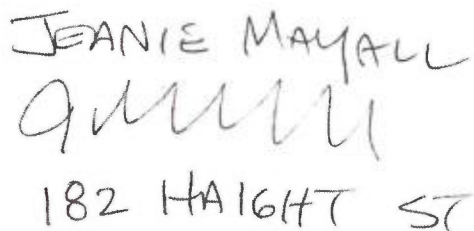 JEANIE MAYALL
182 HAIGHT ST